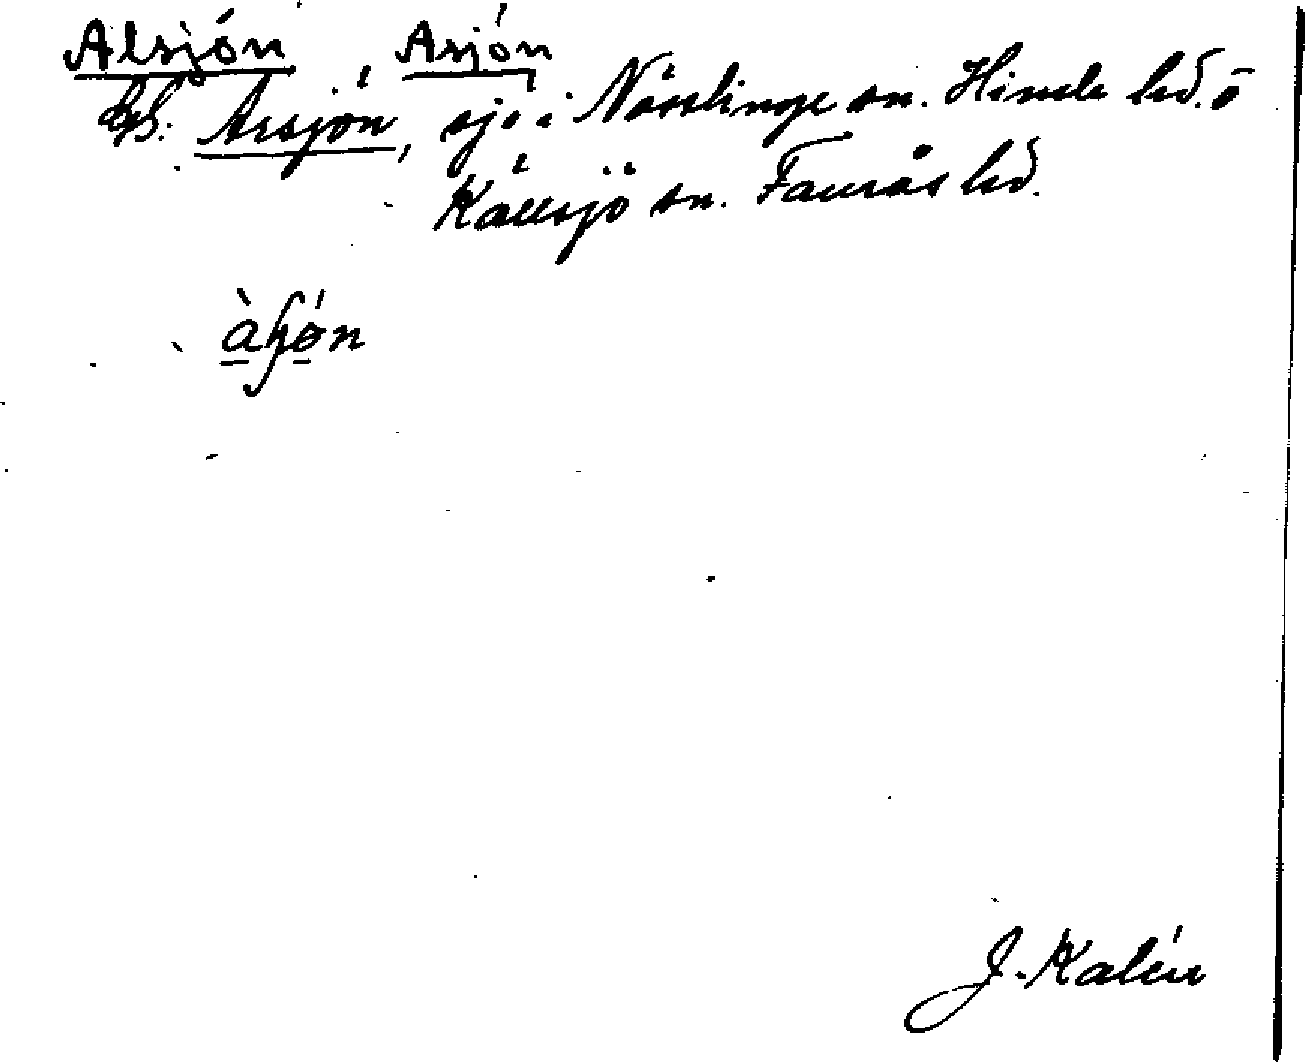 Alsjön, Asjön
Arsjön, sjö i Nösslinge sn. Himle hd. o
Källsjö sn. Faurås hd.
J. Kalén